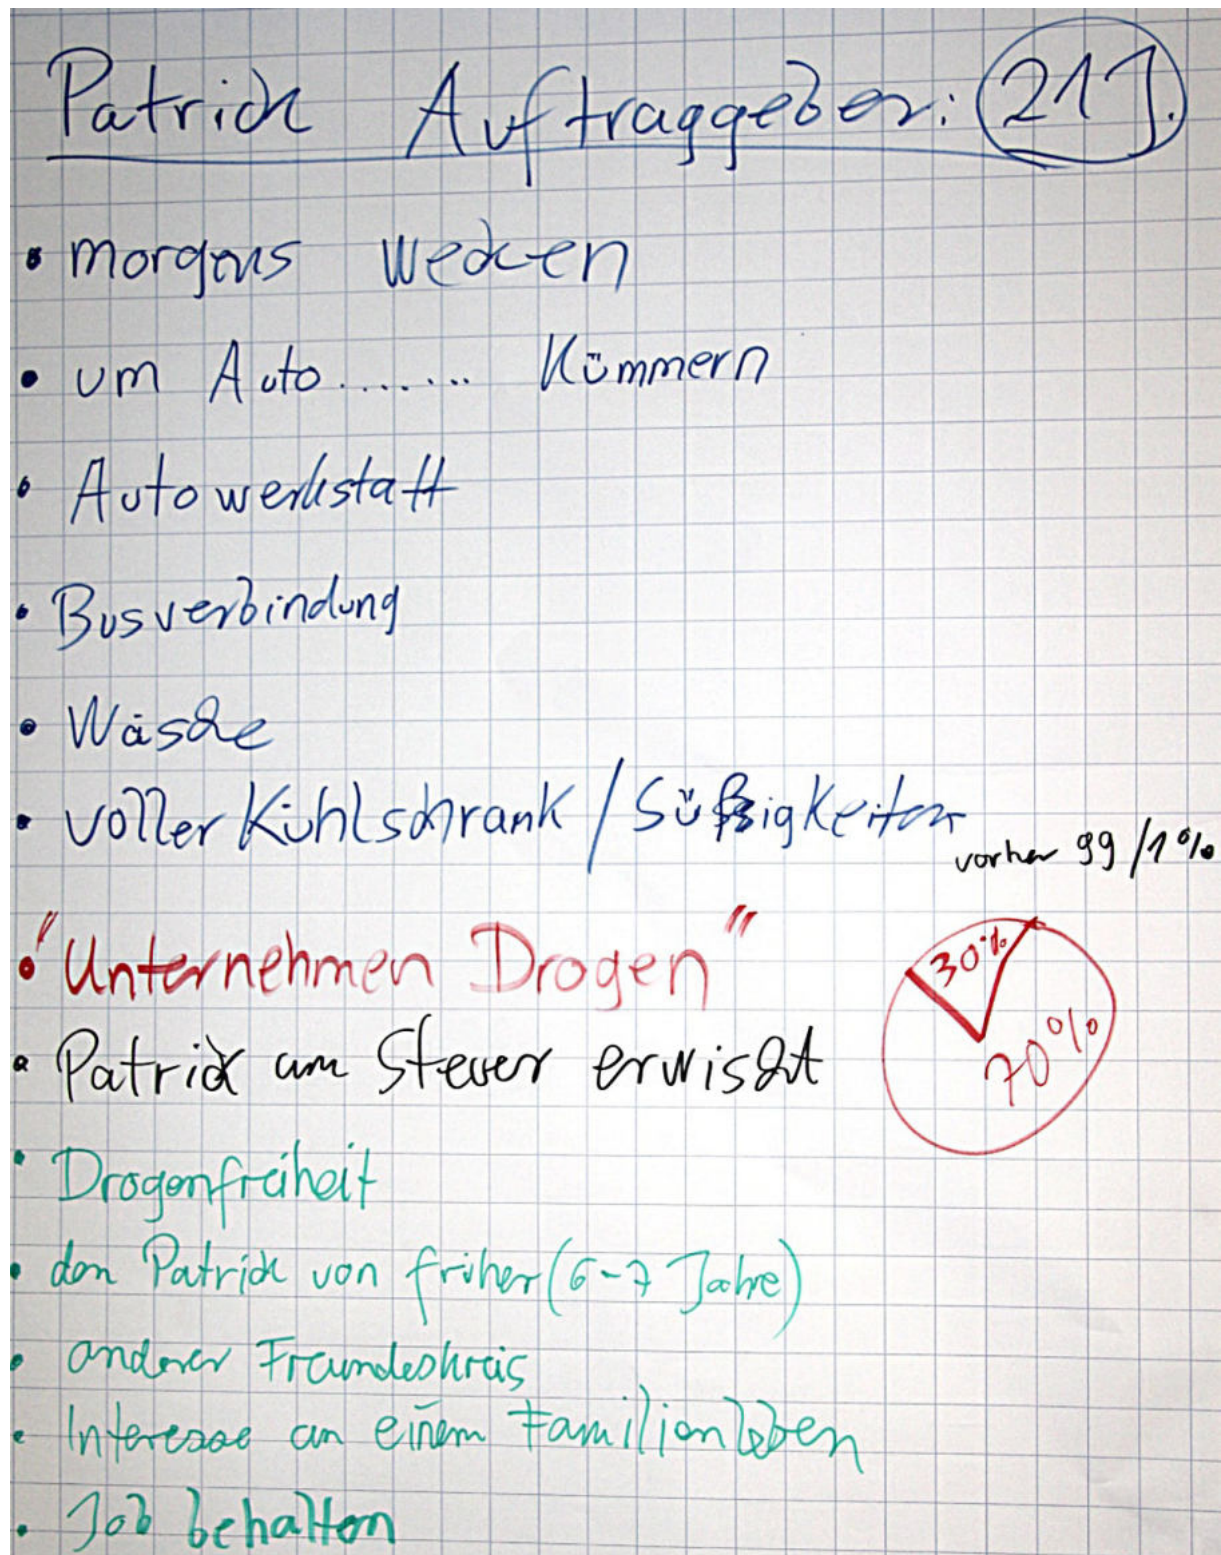 Patrick Auftraggeber: 21 J.
• morgens wecken
• um Auto....... kümmern
• Autowerkstatt
• Busverbindung
• Wäsche
• voller Kühlschrank / Süßigkeiten
vorher 99/1%
• "Unternehmen Drogen"
30%
70%
• Patrick am Steuer erwischt
• Drogenfreiheit
• den Patrick von früher (6-7 Jahre)
• anderer Freundeskreis
• Interesse an einem Familienleben
• Job behalten